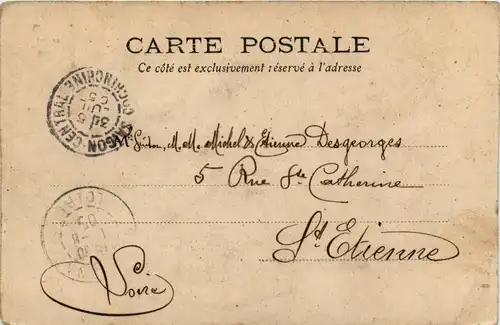 CARTE POSTALE
Ce côté est exclusivement réservé à l'adresse
SAIGON-CENTRAL COCHINCHINE
M. M. Michel & Etienne Desgeorges
5 Rue Ste Catherine
St Etienne
Loire
LOIRE